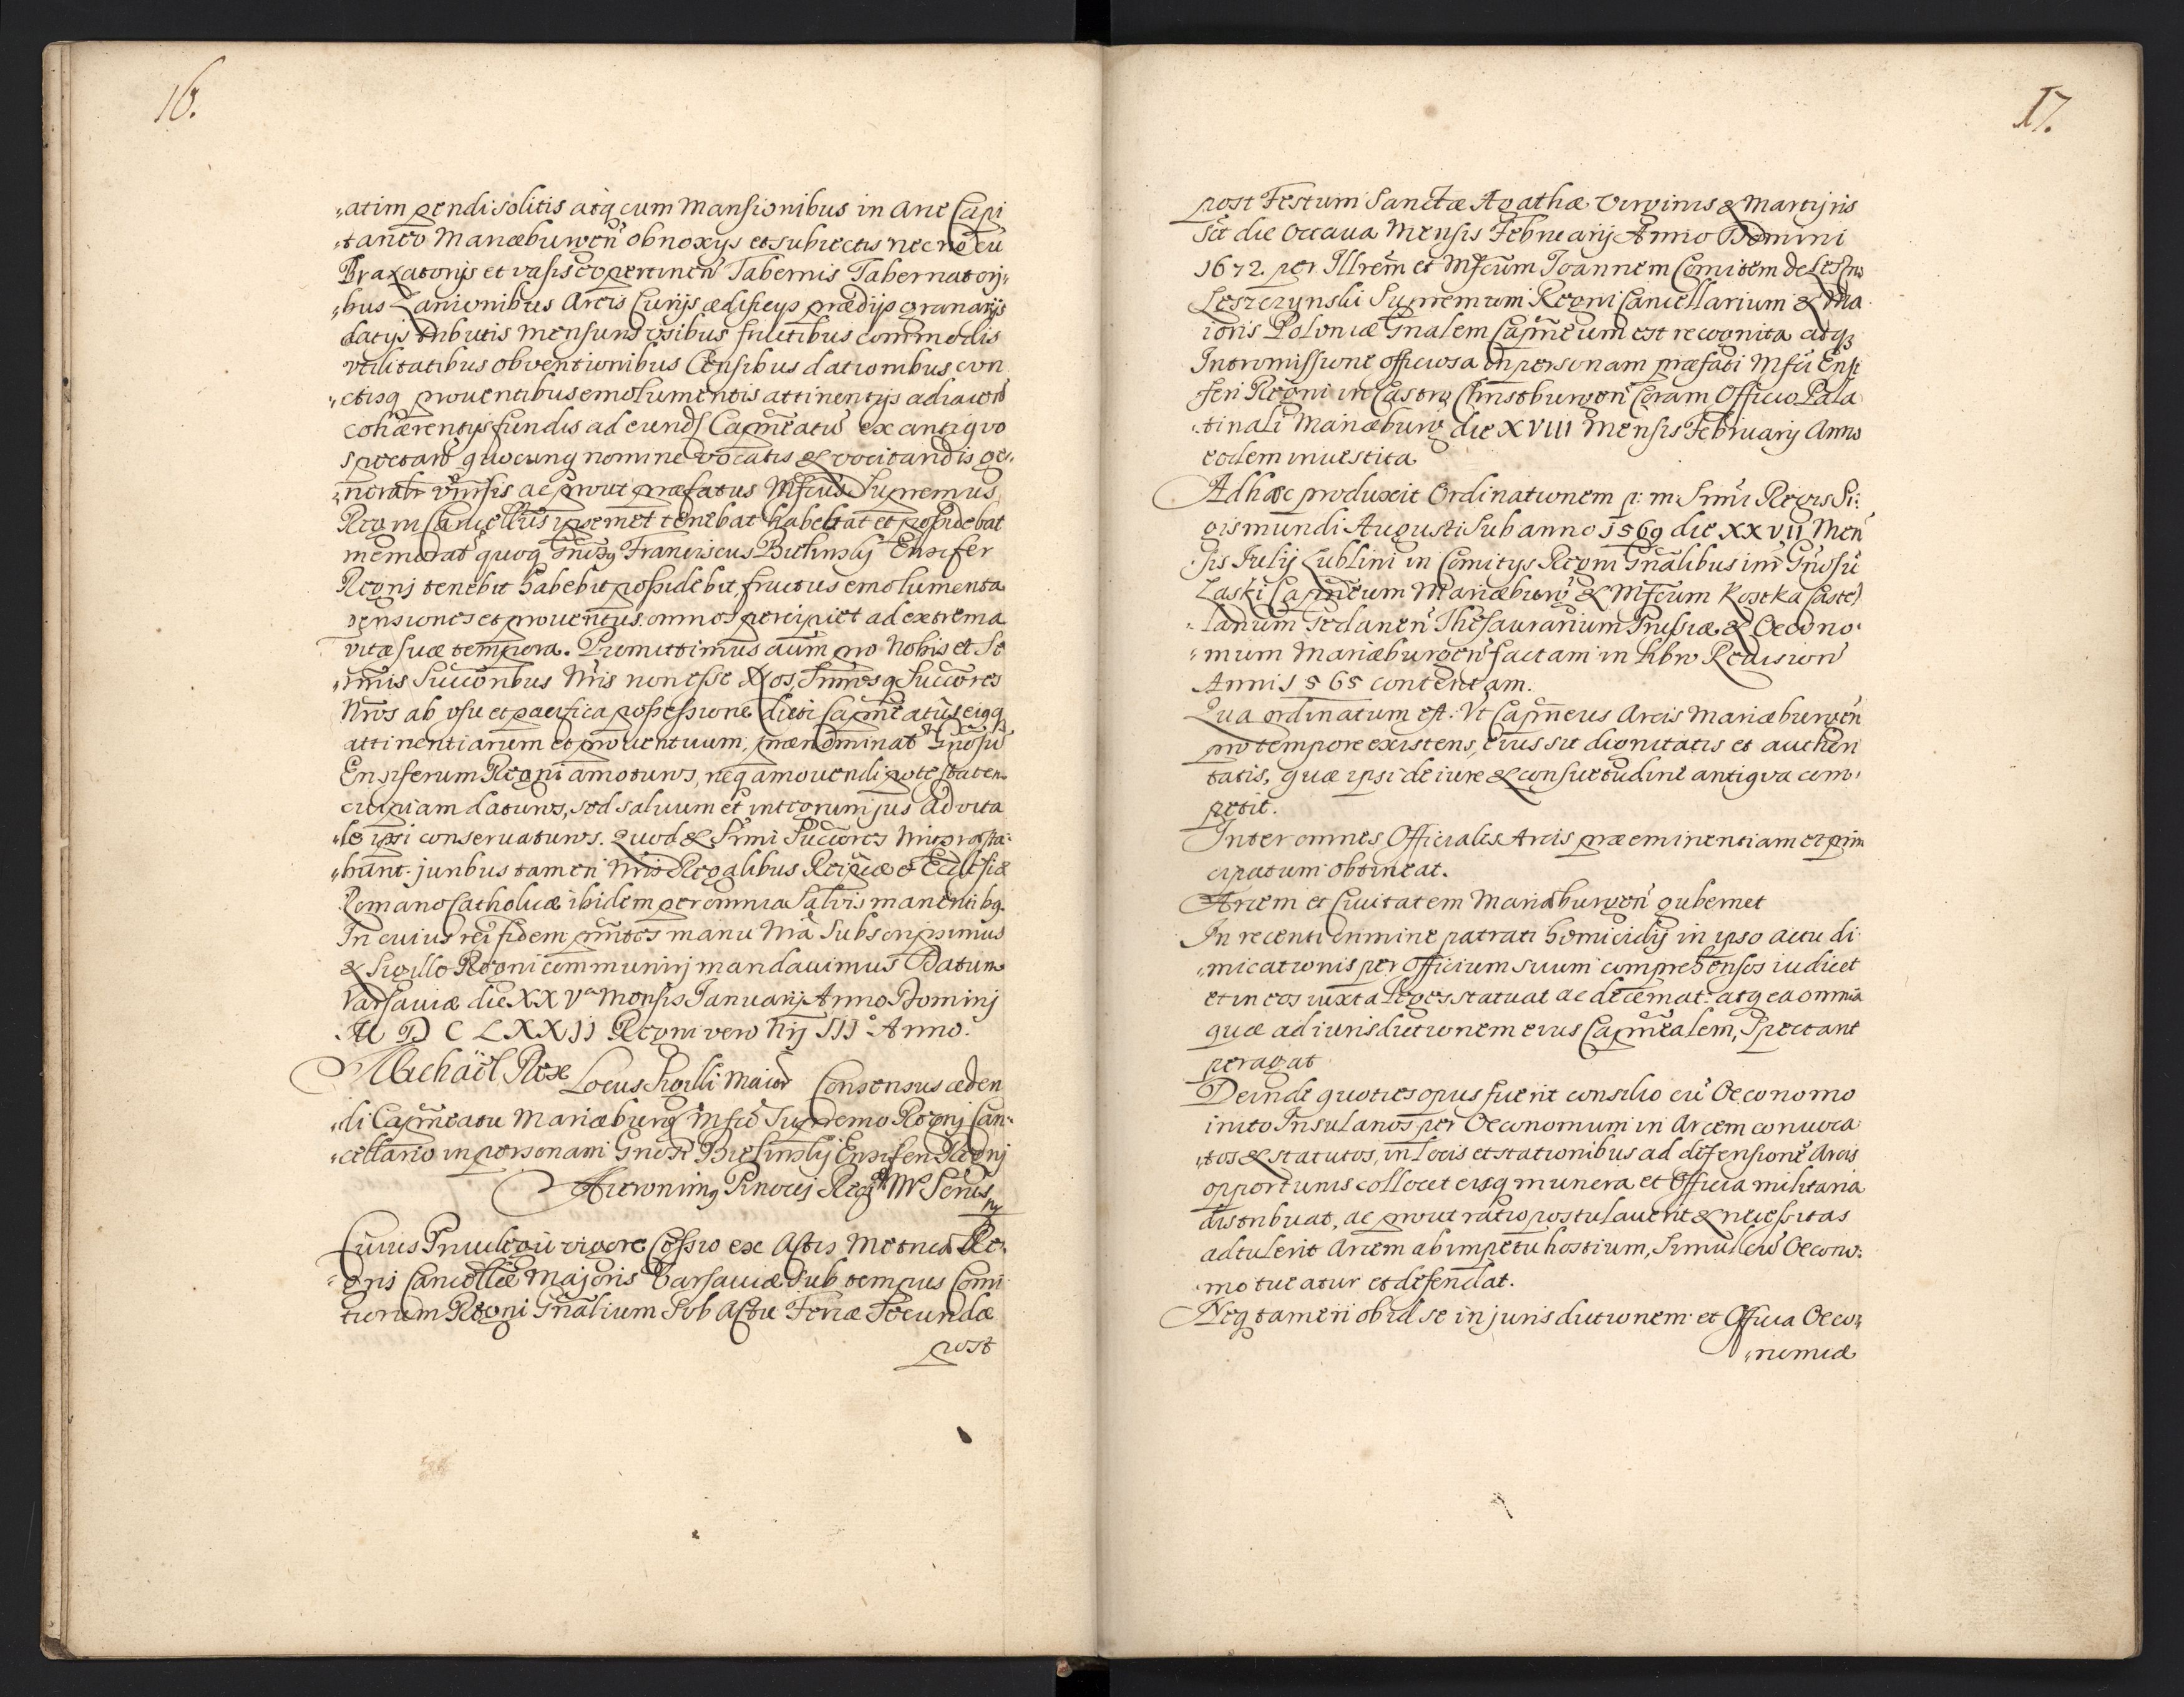 16.
„atim pendi solitis atq cum Mansionibus in Arce Capi
„taneo Mariæburgeñ obnoxys et subiectis nec nõ cũ
Braxatorijs et vasis eo pertineñ Tabernis Tabernatorij„
„bus Lanionibus Arcis Curijs ædificijs prædijs granarijs
datijs tributis mensuris vsibus fructibus commodis
vtilitatibus obventionibus Censibus dationibus cun
„ctisq prouentibus emolumentis attinentijs adiacen
cohærentijs fundis ad eund Capñeatũ ex antiquo
spectañ quocunq nomine vocatis & vocitandis ge„
„neralr vniusis ac prout præfatus Mfcus Supremus
Regni Cancellrius ipsemet tenebat habebat et possidebat
memorat quoq Gnosus Franciscus Bielinsky Ensifer
Regnj tenebit habebit possidebit, fructus emolumenta
pensiones et prouentus omnes percipiet ad extrema
vitæ suæ tempora. Promittimus aũm pro Nobis et Se
„rmis Succoribus Nris non esse Nos, Srmosq Succores
Nros ab vsu et pacifica possessione dicti Capneatus eiusq
attinentiarum et prouentuum, prænominat Gnosũ
Ensiferum Regni amoturos, neq amouendi potestatem
cuipiam daturos, sed saluum et integrum jus aduita
„le ipsi conseruaturos. Quod & Srmi Succores Nri præsta„
„bunt. juribus tamen Nris Regalibus Reipcæ et Ecclesiæ
Romano Catholicæ ibidem per omnia Salvis manentibq.
In cuius rei fidem pñtes manu Nra Subscripsimus
& Sigillo Regni communirj mandauimus Datum
Varsauiæ die XXVa Mensis Januarij Anno Dominj
M D C LXXII Regni vero Nrj III° Anno.
Michaël Rex Locus Sigilli Maior Consensus ceden
„di Capñeatu Mariæburg Mfco Supremo Regnj Can„
„cellario in personam Gnosi Bielinsky Ensiferi Regnj
Hieronimq Pinocij Regiæ Mtis Secris
mp
Cuius Priuilegii vigore Cessio ex Actis Metrices Re„
„gnj Cancellæ Majoris Varsauiæ sub tempus Comi
tiorum Regni Gnalium Sub Actu Feriæ Secundæ
post
17.
post Festum Sanctæ Agathæ Virginis & Martijris
Sct die Octaua Mensis Februarij Anno Domini
1672. per Illrem et Mfcum Joannem Comitem de Leszno
Leszczynski Supremum Regni Cancellarium & Ma
ioris Poloniæ Gnalem Capneum est recognita atq
Intromissione officiosa in personam præfati Mfci Ensi
feri Regni in Castro Christburgeñ Coram Officio Pala
„tinali Mariæburg die XVIII Mensis Februarij Anno
eodem inuestita
Ad hæc produxit Ordinationem p: m: Srmi Regis Si:
gismundi Augusti Sub anno 1569 die XXVII Men
sis Julij Lublini in Comitys Regni Gnalibus intr Gnosũ
Laski Capneum Mariæburg & Mfcum Kostka Castel
„lanum Gedaneñ Thesaurarium Prussiæ & Oecono„
„mum Mariæburgeñ factam in libro Reuision
Anni 1565 contentam.
Qua ordinatum est. Vt Capneus Arcis Mariæburgeñ
pro tempore existens, eius sit dignitatis et authori
tatis, quæ ipsi de iure & consuetudine antiqva com„
petit.
Inter omnes Officiales Arcis præeminentiam et prin
cipatum obtineat.
Arcem et Ciuitatem Mariæburgeñ gubernet
In recenti crimine patrati homicidij in ipso actu di„
„micationis per Officium suum comprehensos iudicet
et in eos iuxta leges statuat ac decernat. atq ea omnia
quæ ad iurisdictionem eius Capnealem, Spectant
peragat
Deinde quoties opus fuerit consilio cũ Oeconomo
inito Insulanos per Oeconomum in Arcem conuoca
„tos & statutos, in locis et stationibus ad defensione Arcis
opportunis collocet eisq munera et Officia militaria
distribuat, ac prout ratio postulauerit & necessitas
adtulerit Arcem ab impetu hostium, Simul cũ Oecono„
„mo tueatur et defendat.
Neq tamen ob id se in jurisdictionem et Officia Oeco„
„nomiæ